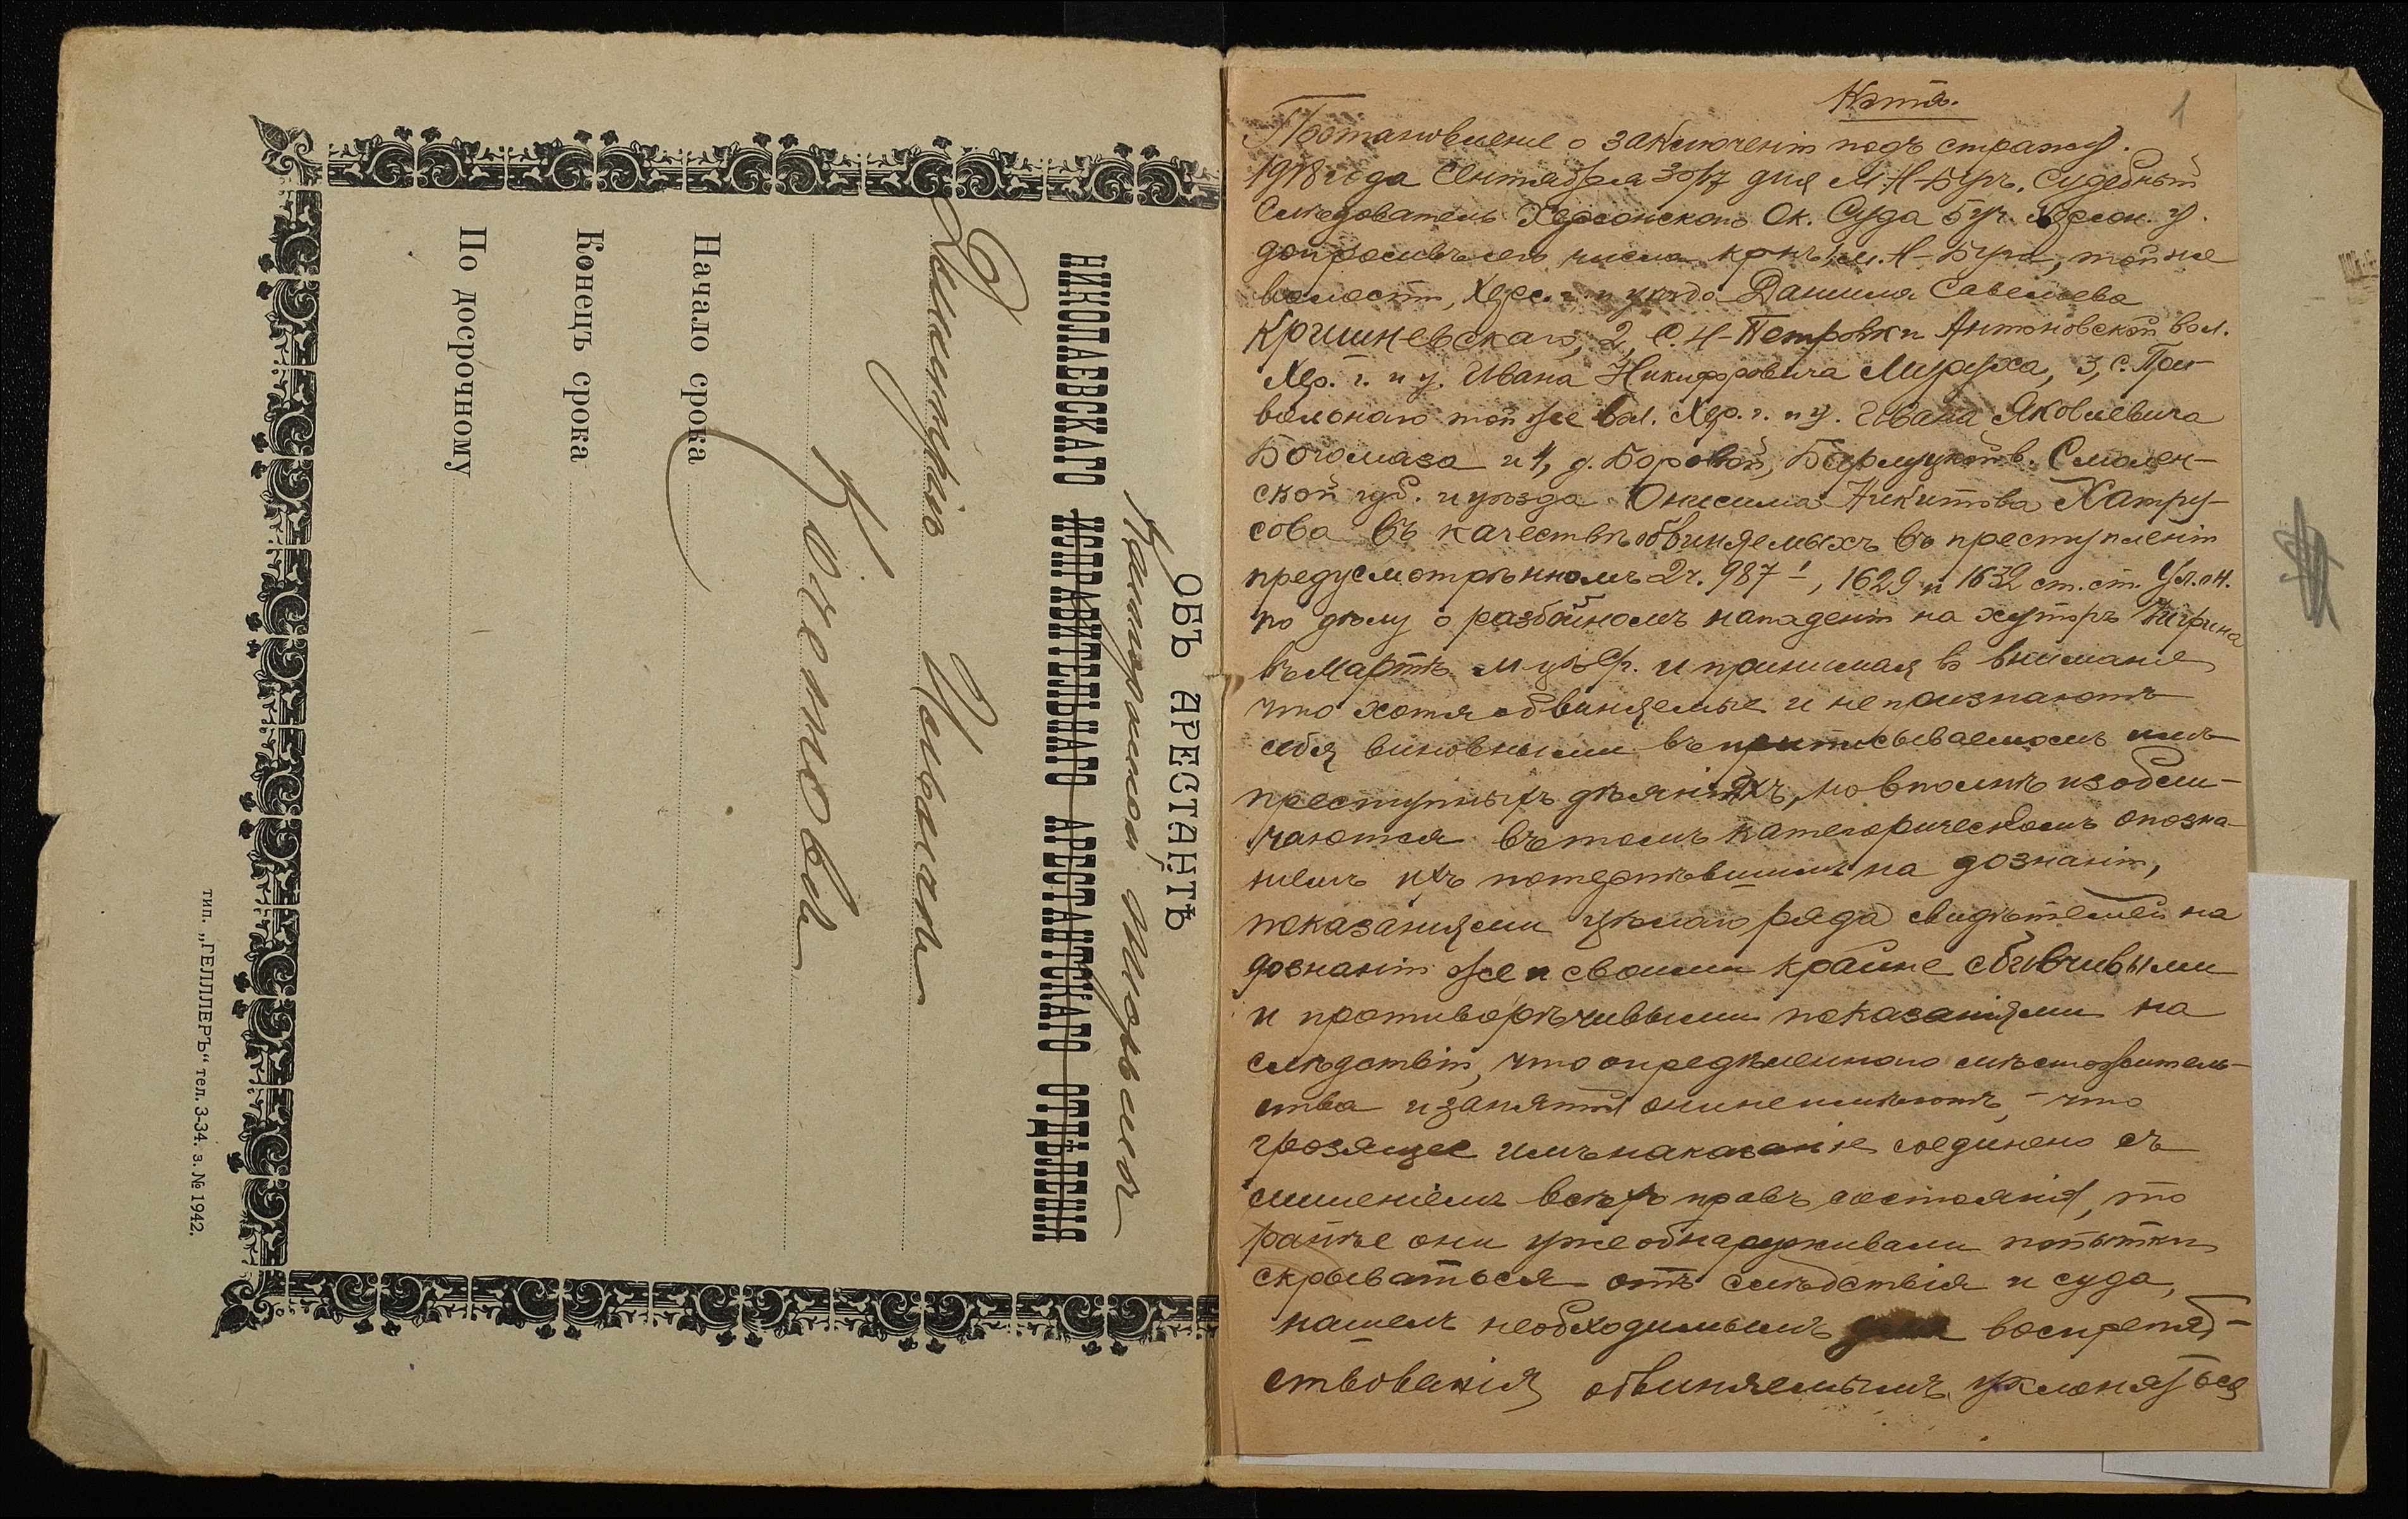 ОБЪ АРЕСТАНТѢ
Каторжной тюрьмы
НИКОЛАЕВСКАГО ИСПРАВИТЕЛЬНАГО АРЕСТАНТСКАГО ОТДѢЛЕНІЯ
Начало срока
Конецъ срока
По досрочному
тип. „ГЕЛЛЛЕРЪ“ тел. 3-34. з. № 1942.
1
Копія.
Постановленіе о заключеніи подъ стражу.
1918 года Сентября 30/17 дня М. Н-Бугъ. Судебный
Слѣдователь Херсонскаго Ок. Суда 5 уч. Херсон. у.
допросивъ сего числа кр-нъ м. Н-Буга, той же
волости, Херс. г. и уѣзда Данила Савельева
Кришневскаго, 2, с. Н-Петровки Антоновской вол.
Хер. г. и у. Ивана Никифоровича 3, с. При-
вольнаго той же вол. Хер. г. и у. Ивана Яковлевича
Богомаза и 4, д. Боровой, Смолен-
ской губ. и уѣзда Онисима Никитова Хатру-
сова въ качествѣ обвиняемыхъ въ преступленіи
предусмотрѣнномъ 2 ч. 987¹, 1629 и 1632 ст. ст. Ул. о Н.
по дѣлу о разбойномъ нападеніи на хуторъ
въ Мартѣ и принимая въ вниманіе
что хотя обвиняемые и не признаютъ
себя виновными въ приписываемомъ имъ
преступныхъ дѣяніяхъ, но вполнѣ изобли-
чаются въ томъ категорическимъ опозна-
ніемъ ихъ потерпѣвшими на дознаніи,
показаніями цѣлаго ряда свидѣтелей на
дознаніи же и своими крайне сбивчивыми
и противорѣчивыми показаніями на
слѣдствіи, что опредѣленнаго мѣстожитель-
ства и занятій они не имѣютъ, что
грозящее имъ наказаніе соединено съ
лишеніемъ всѣхъ правъ состоянія, что
ранѣе они уже обнаруживали попытки
скрываться отъ слѣдствія и суда,
нашелъ необходимымъ для воспрепят-
ствованія обвиняемымъ уклоняться